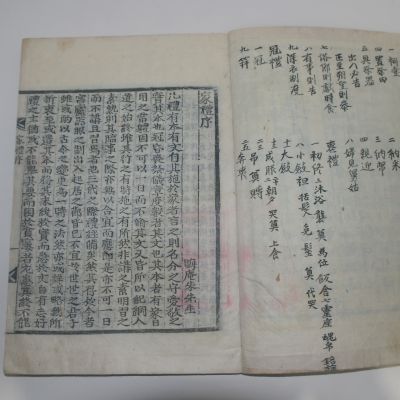 一祠堂
四置祭田
五具祭器
出入必告
正至朔望則參
七俗節則獻時食
八有事則告
九深衣制度
冠禮
一冠
九笄
二納采
三納幣
四親迎
八婦見舅姑
喪禮
一初終 二沐浴 襲 奠 爲位 飯含 七靈座 魂帛 銘旌
八小斂 袒 括髮 免 髽 奠 代哭
十大斂
成服 朝夕哭奠 上食
吊奠賻
奔喪
家禮序
晦庵朱先生
凡禮有本有文自其施於家者言之則名分之守愛敬之
實其本也冠昏喪祭儀章度數者其文也其本者有家日
用之常體固不可以一日而不脩其文又皆所以紀綱人
道之始終雖其行之有時施之有所然非講之素明習之
素熟則其臨事之際亦無以合宜而應節是亦不可一日
而不講且習焉者也三代之際禮經備矣然其存於今者
宮廬器服之制出入起居之節皆已不宜於世世之君子
雖或酌以古今之變更爲一時之法然亦或詳或略無所
折衷至或遺其本而務其末緩於實而急於文自有志好
禮之士猶或不能擧其要而困於貧窶者尤患其終不能
家禮序